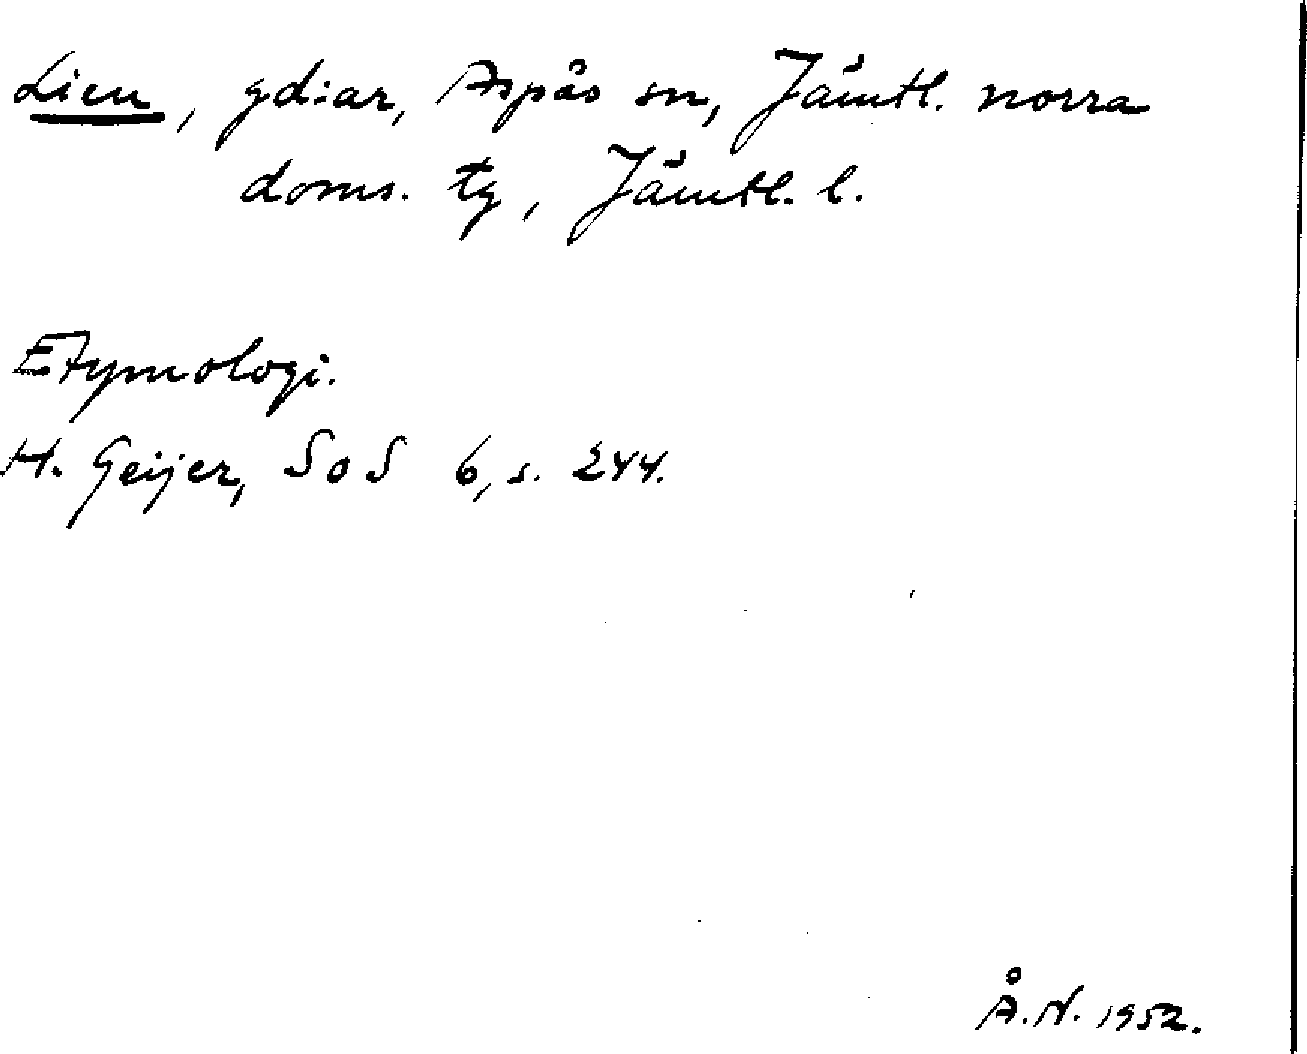 Lien, gdiar, Aspås sn, Jämtl. norra
doms. tg, Jämtl. l.
Etymologi.
H. Geijer, SoS 6, s. 244.
Å.N. 1952.